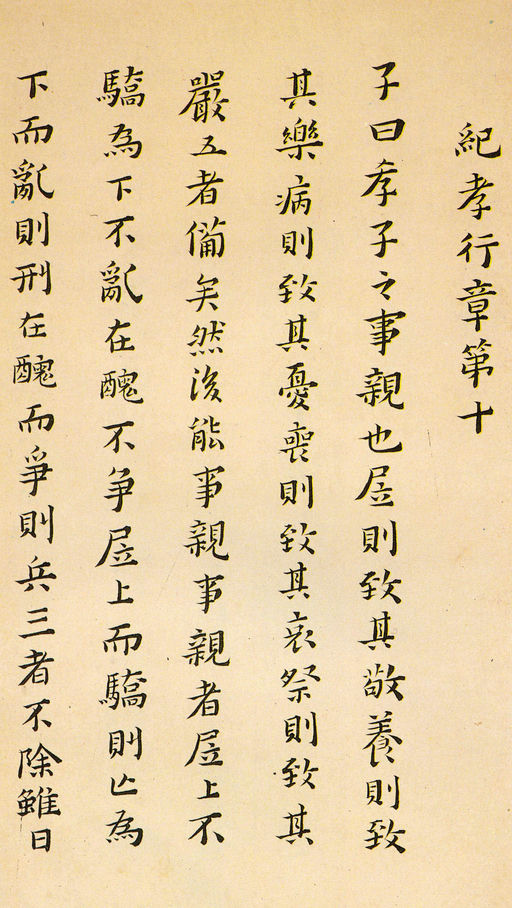 紀孝行章第十
子曰孝子之事親也居則致其敬養則致
其樂病則致其憂喪則致其哀祭則致其
嚴五者備矣然後能事親事親者居上不
驕為下不亂在醜不争居上而驕則亡為
下而亂則刑在醜而爭則兵三者不除雖日